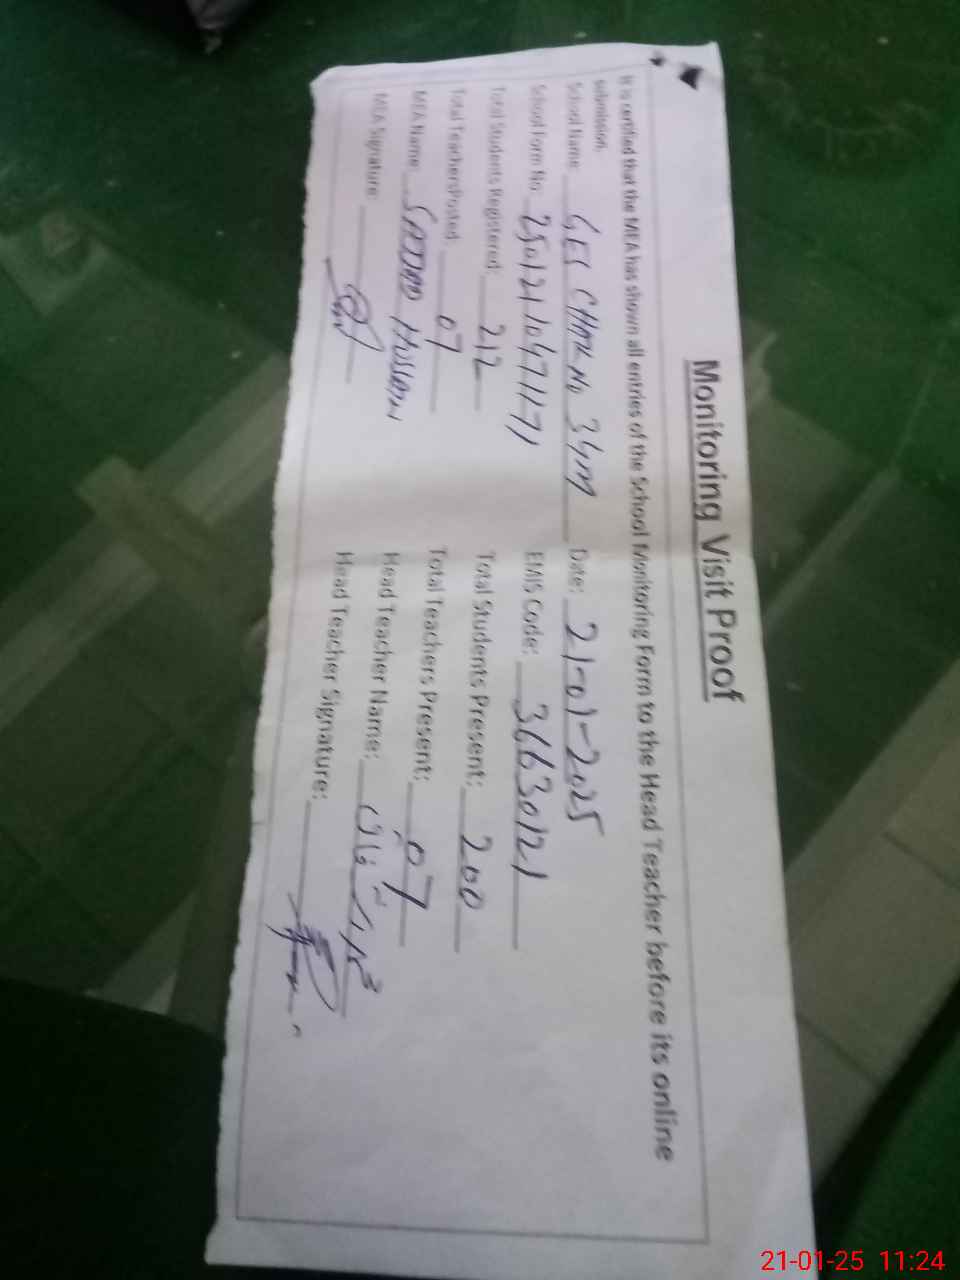 Monitoring Visit Proof
It is certified that the MEA has shown all entries of the School Monitoring Form to the Head Teacher before its online
submission.
School Name: GES CHAK NO 34M Date: 21-01-2025
School Form No. 25012110471171 EMIS Code: 36630121
Total Students Registered: 212 Total Students Present: 200
Total Teachers Posted: 07 Total Teachers Present: 07
MEA Name: SAJJAD HUSSAIN Head Teacher Name:
MEA Signature: Head Teacher Signature:
21-01-25 11:24